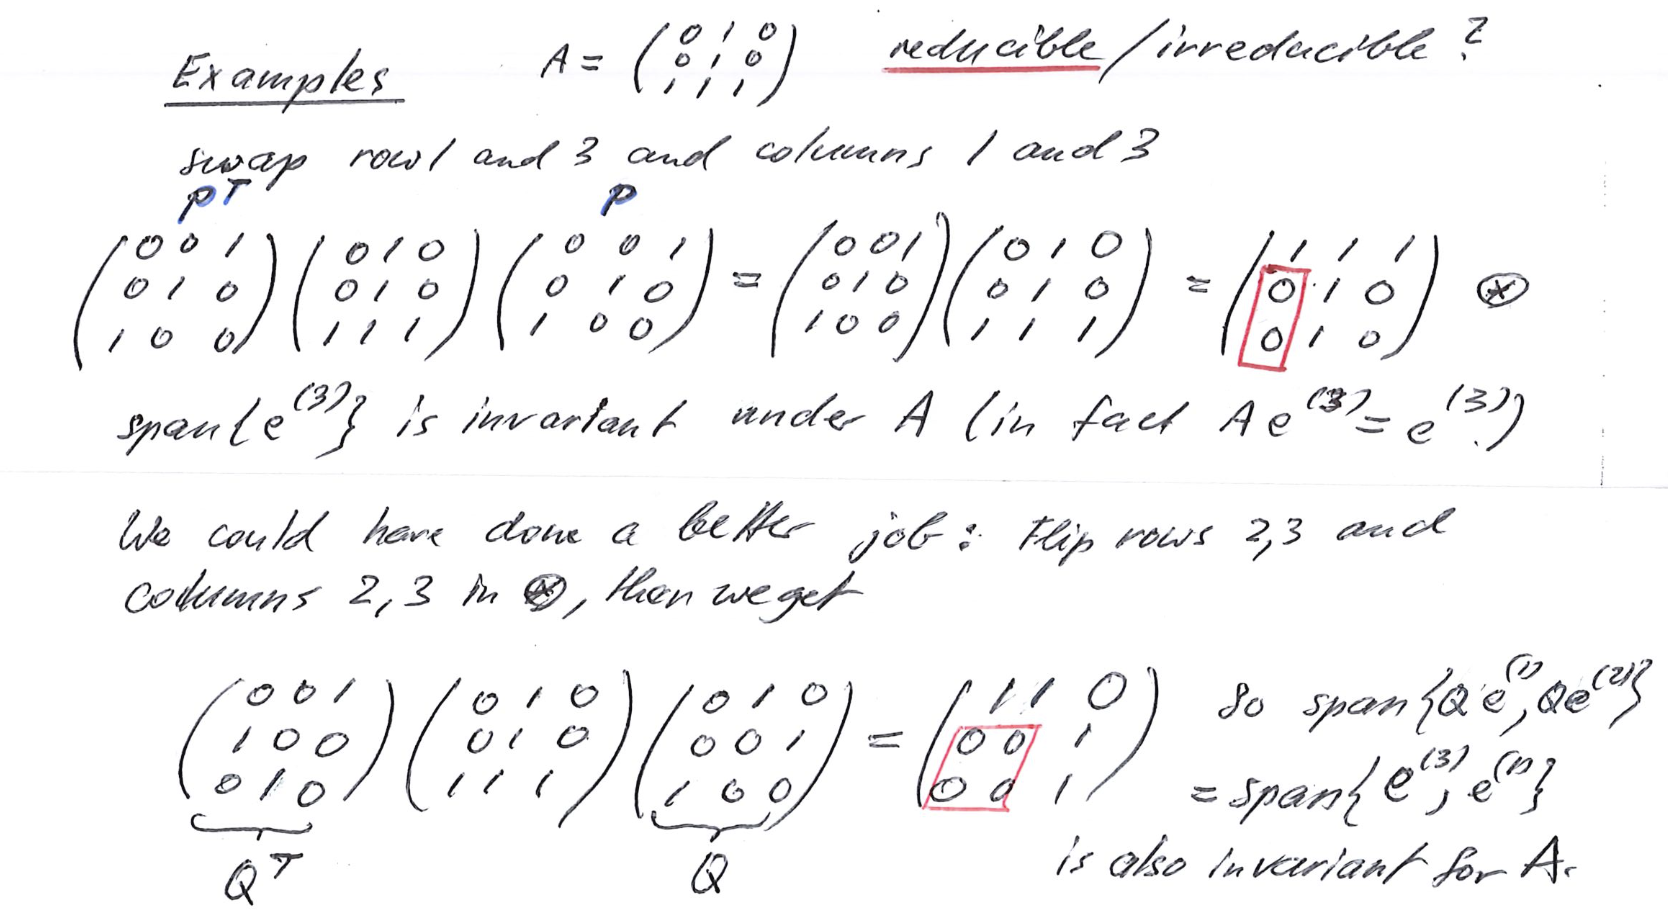 Examples A = (0 1 0; 0 1 0; 1 1 1) reducible/irreducible?
swap row 1 and 3 and columns 1 and 3
Pᵀ P
(0 0 1; 0 1 0; 1 0 0) (0 1 0; 0 1 0; 1 1 1) (0 0 1; 0 1 0; 1 0 0) = (0 0 1; 0 1 0; 1 0 0) (0 1 0; 0 1 0; 1 1 1) = (1 1 1; 0 1 0; 0 1 0) ⊛
span{e⁽³⁾} is invariant under A (in fact A e⁽³⁾ = e⁽³⁾.)
We could have done a better job: Flip rows 2,3 and
columns 2,3 in ⊛, then we get
(0 0 1; 1 0 0; 0 1 0) (0 1 0; 0 1 0; 1 1 1) (0 1 0; 0 0 1; 1 0 0) = (1 1 0; 0 0 1; 0 0 1) So span{Qe⁽¹⁾, Qe⁽²⁾}
= span{e⁽³⁾, e⁽¹⁾}
Qᵀ Q is also invariant for A.